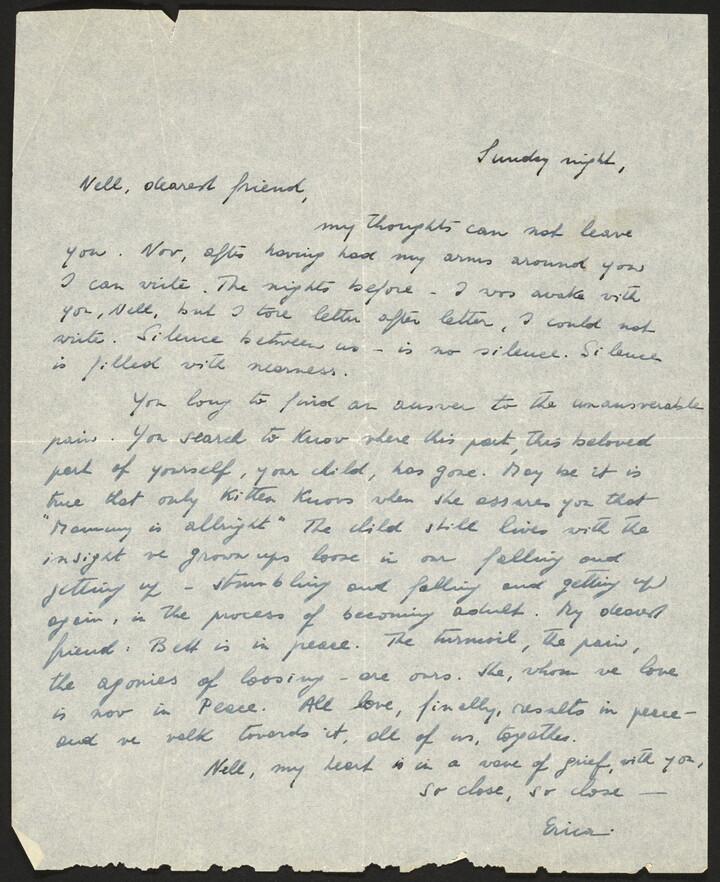 Sunday night,
Nell, dearest friend,
my thoughts can not leave
you. Now, after having had my arms around you
I can write. The nights before - I was awake with
you, Nell, but I tore letter after letter, I could not
write. Silence between us - is no silence. Silence
is filled with nearness.
You long to find an answer to the unanswerable
pain. You search to know where this part, this beloved
part of yourself, your child, has gone. May be it is
true that only Kitten knows when she assures you that
"Mammy is allright" The child still lives with the
insight we grown ups loose in our falling and
getting up - stumbling and falling and getting up
again, in the process of becoming adult. My dearest
friend: Bett is in peace. The turmoil, the pain,
the agonies of loosing - are ours. She, whom we love
is now in Peace. All love, finally, results in peace -
and we walk towards it, all of us, together.
Nell, my heart is in a wave of grief, with you,
so close, so close —
Erica.